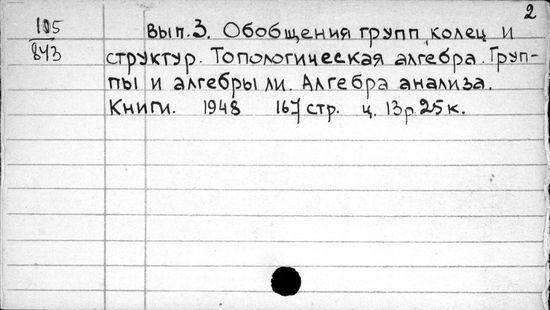 2
105
843
вып. 3. Обобщения групп, колец и
структур. Топологическая алгебра. Груп-
пы и алгебры ли. Алгебра анализа.
Книги. 1948 167 стр. ц. 13 р. 25 к.